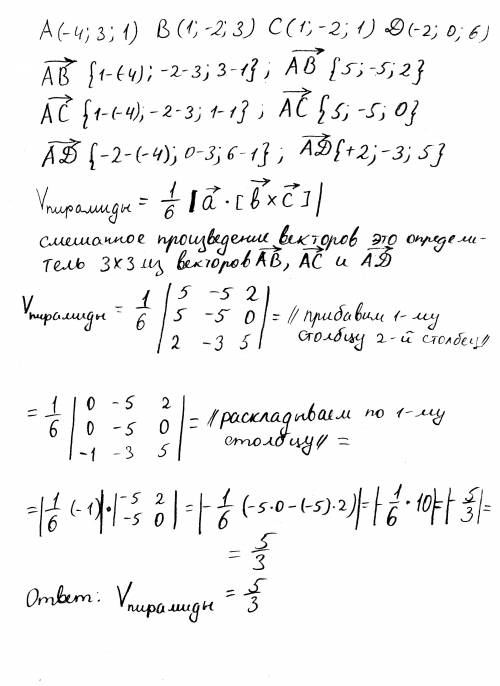 A(-4; 3; 1) B(1; -2; 3) C(1; -2; 1) D(-2; 0; 6)
AB {1-(-4); -2-3; 3-1}; AB {5; -5; 2}
AC {1-(-4); -2-3; 1-1}; AC {5; -5; 0}
AD {-2-(-4); 0-3; 6-1}; AD {+2; -3; 5}
Vпирамиды = 1/6 |a · [b × c]|
смешанное произведение векторов это определи-
тель 3×3 из векторов AB, AC и AD
Vпирамиды = 1/6 | 5 -5 2 | 5 -5 0 | 2 -3 5 | = // прибавим 1-му
столбцу 2-й столбец //
= 1/6 | 0 -5 2 | 0 -5 0 | -1 -3 5 | = // раскладываем по 1-му
столбцу // =
= |1/6 (-1)| · | -5 2 | -5 0 | = |-1/6 (-5·0-(-5)·2)| = |-1/6 · 10| = |-5/3| =
= 5/3
Ответ: Vпирамиды = 5/3